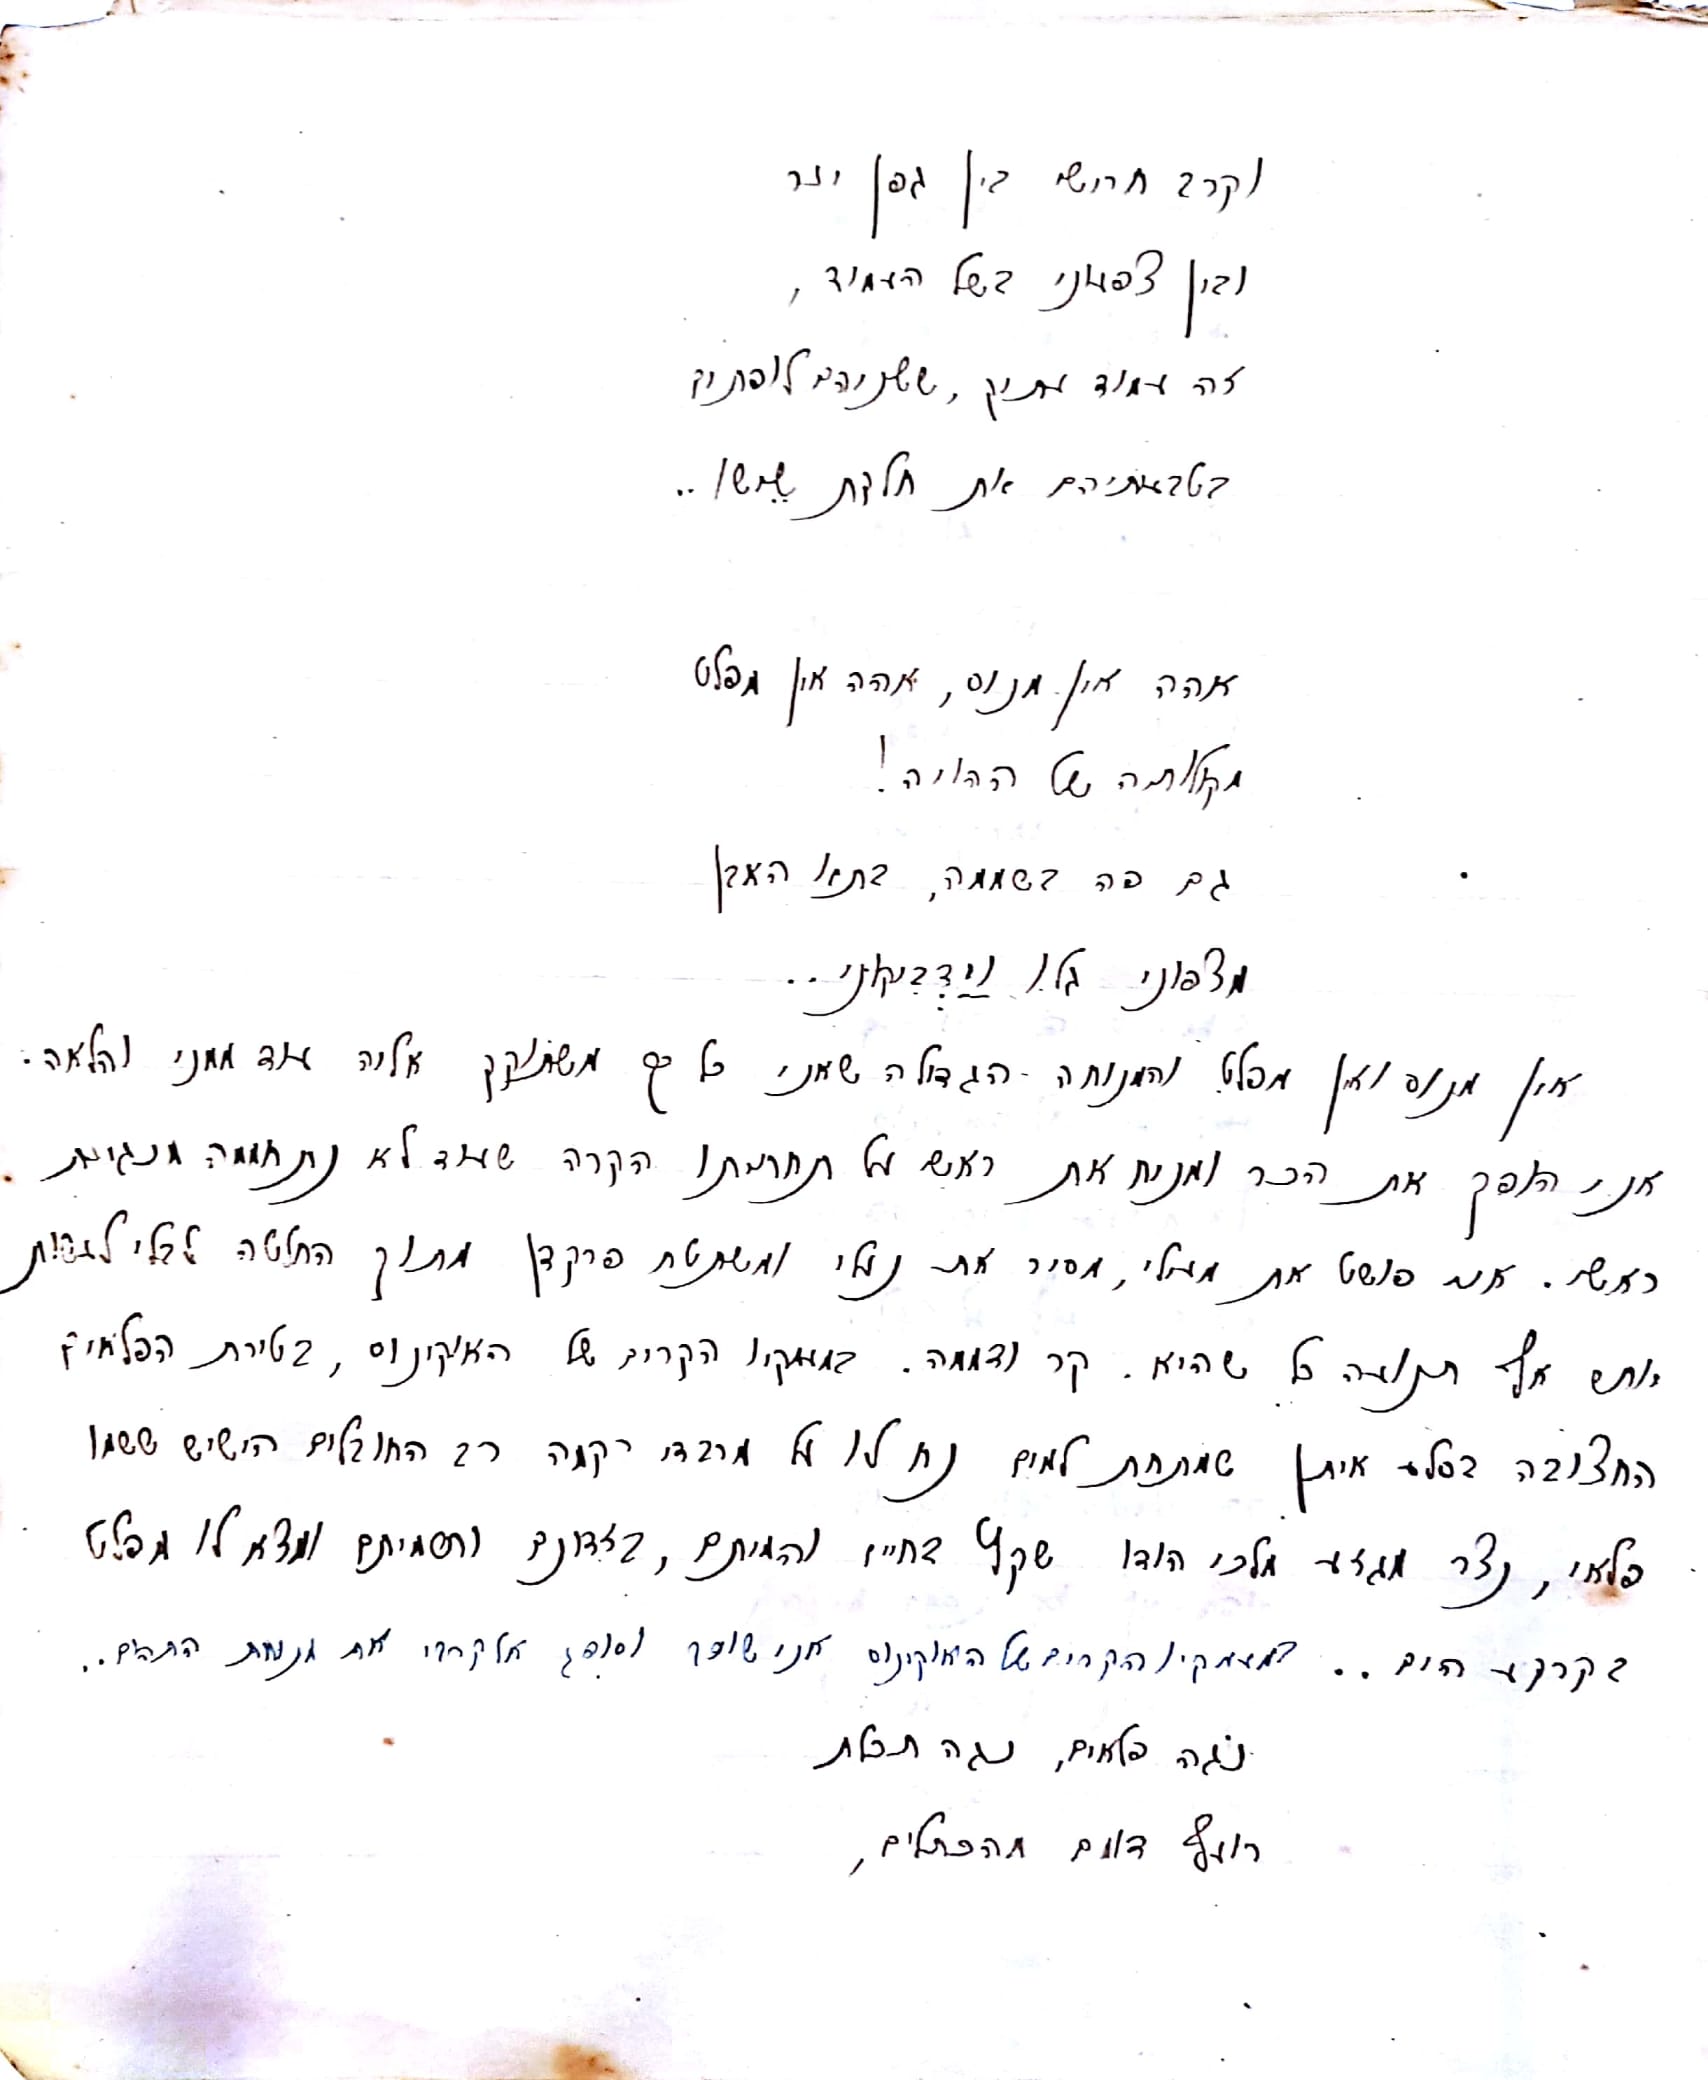 וקרב חרישי בין גפן יער
ובין צפעוני בשל העמוד,
זה עמוד עתיק, ששניהם לופתים
בטבעותיהם את חלדת שָׁישוֹ..
אהה אין מנוס, אהה אין מפלט
מקללתה של ההויה!
גם פה בשממה, בתאו האבן
מצפוני גלו וַיַדְבִיקוּני..
אין מנוס ואין מפלט והמנוחה - הגדולה שאני כל כך משתוקק אליה עוד ממני והלאה.
אני הופך את הכר ומניח את ראשי על תחתיתו הקרה שעוד לא נתחממה מנגיעת
ראשי. אני פושט את מעילי, מסיר את נעלי ומשתטח פרקדן מתוך החלטה לבלי לעשות
אף תנועה כל שהיא. קר ודממה. במעמקיו הקרים של האוקינוס, בטירת הפלאים
החצובה בסלע איתן שמתחת למים נח לו על מרבדי רקמה רב החובלים הישיש ששמו
פלאי, נצר מגזע מלכי הודו שקץ בחיים והמיתם, בזדונם ותרמיתם ומצא לו מפלט
בקרקע הים .. במעמקיו הקרים של האוקינוס אני שוכב וסופג אל קרבי את מנוחת התהום..
נגה פלאים, נגה תכלת
רועף דומם מהכתלים,